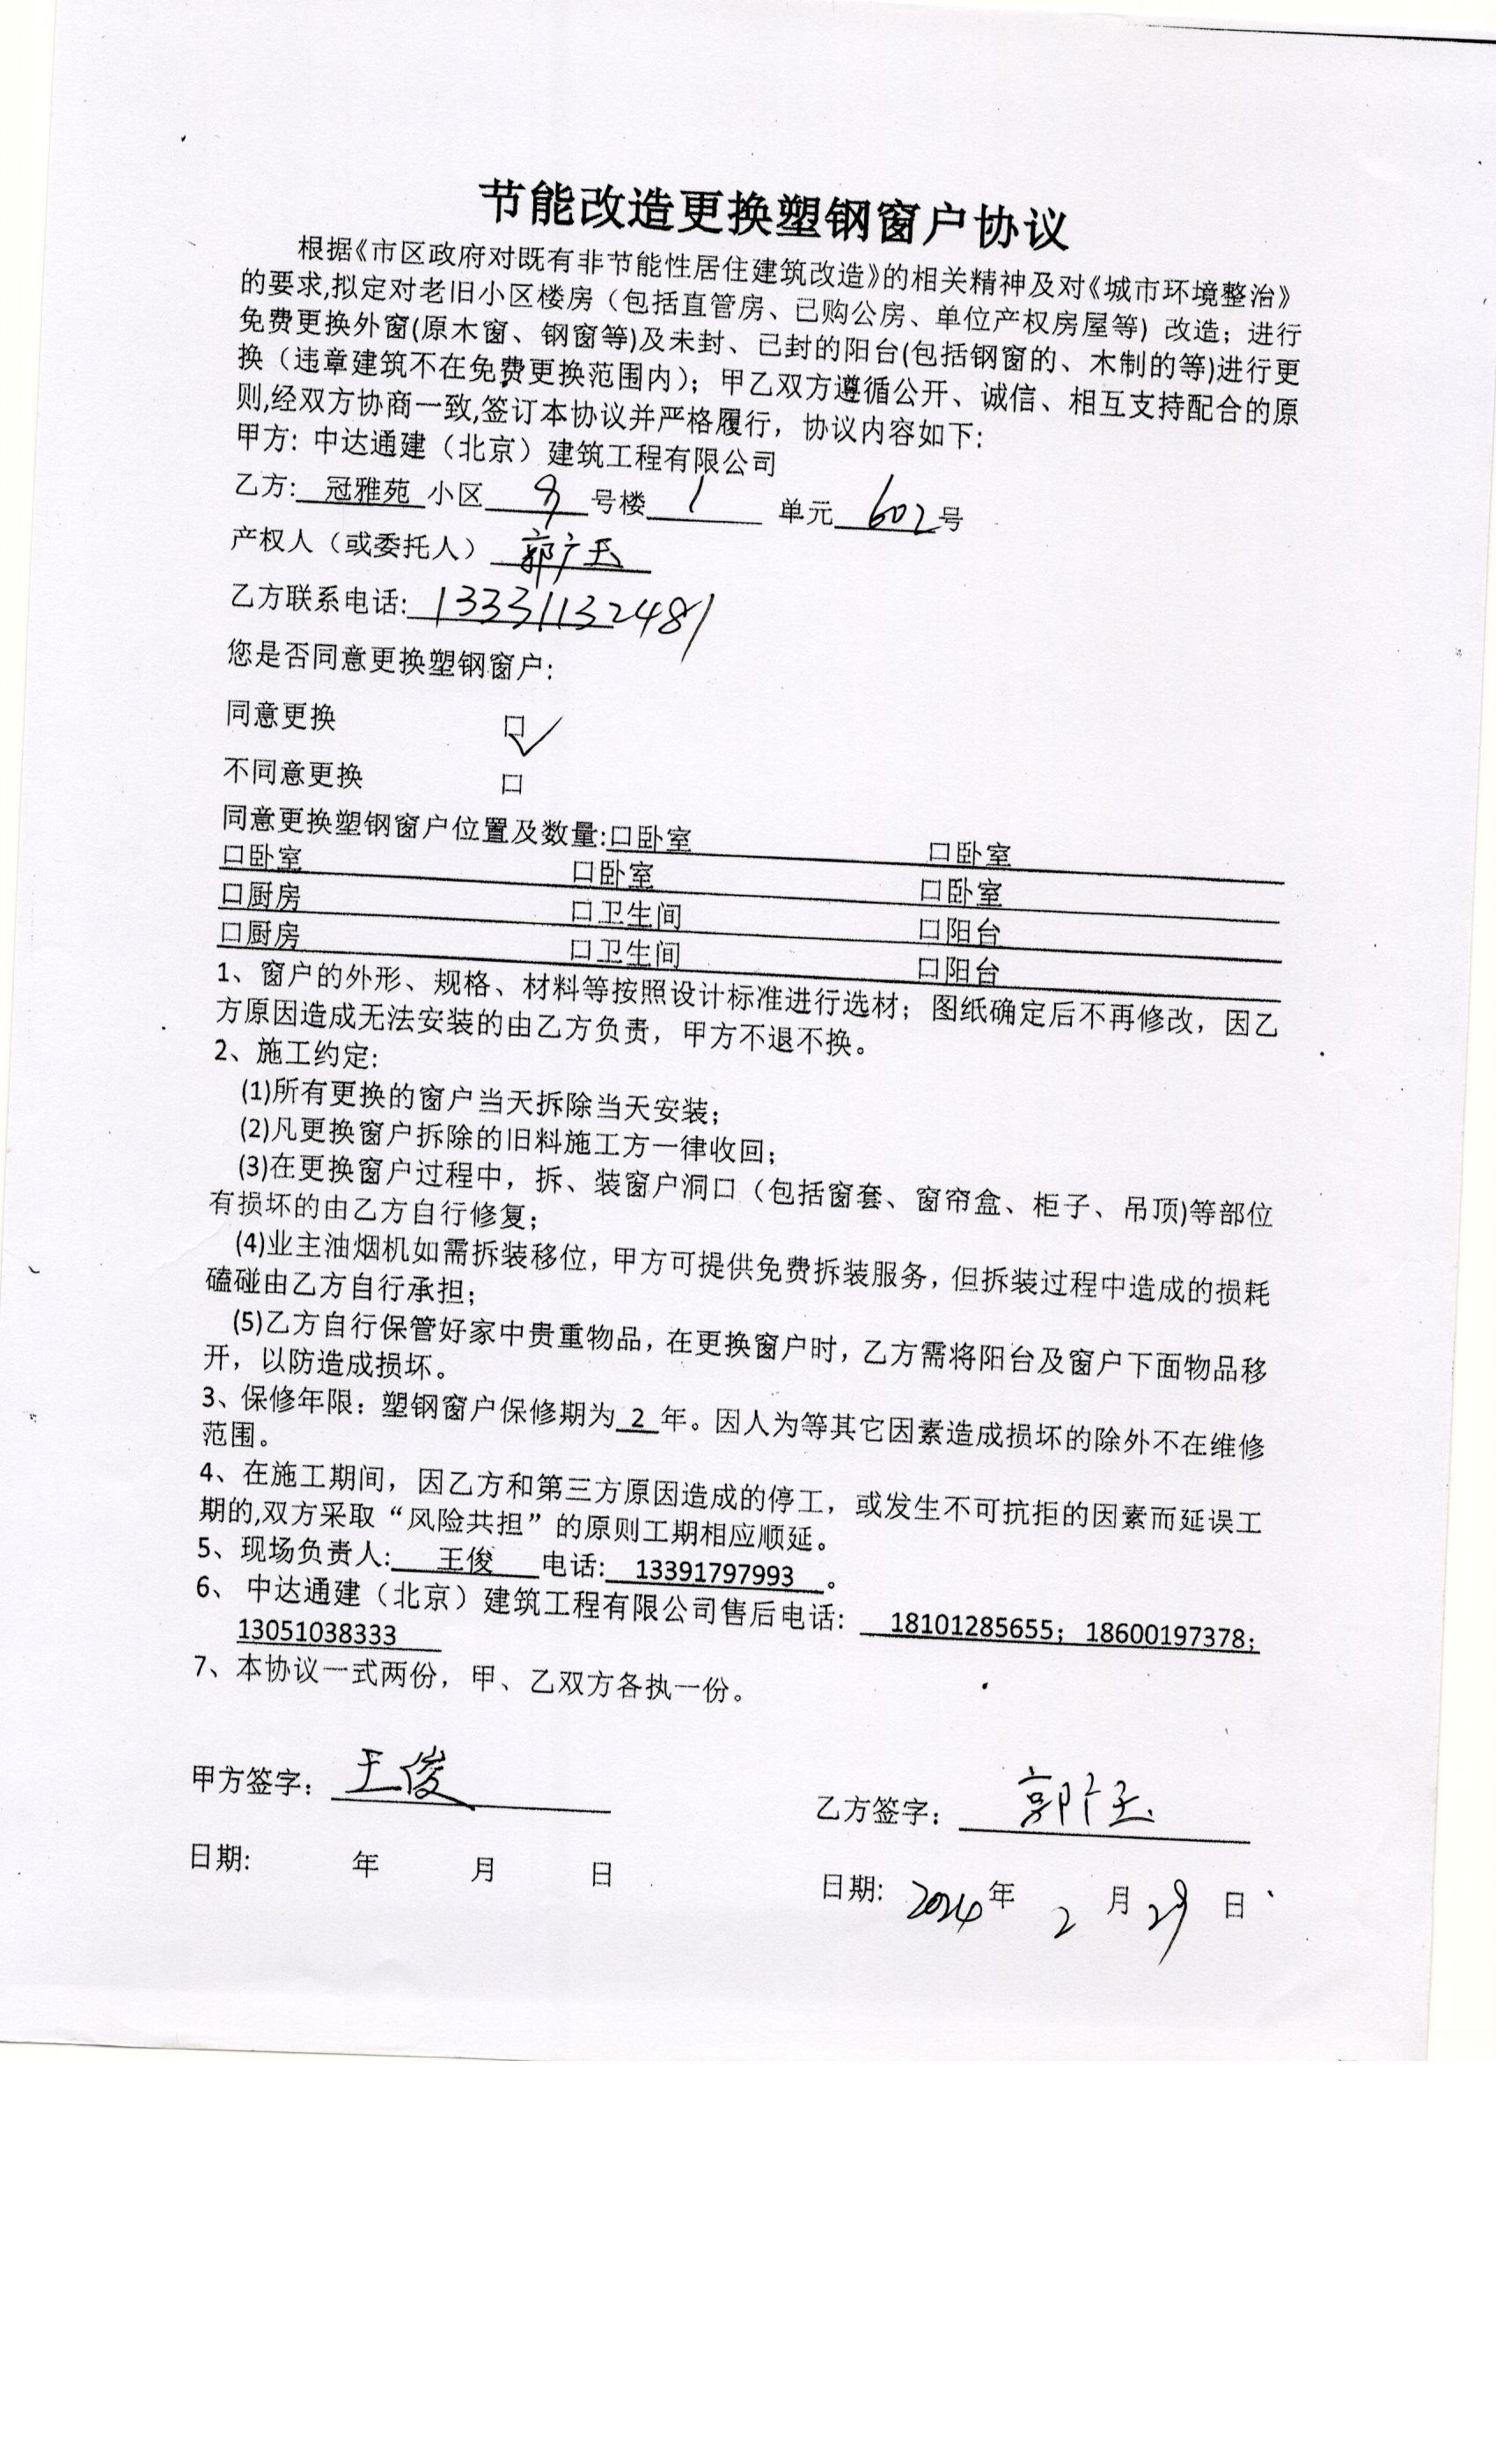 节能改造更换塑钢窗户协议
根据《市区政府对既有非节能性居住建筑改造》的相关精神及对《城市环境整治》
的要求,拟定对老旧小区楼房（包括直管房、已购公房、单位产权房屋等）改造；进行
免费更换外窗(原木窗、钢窗等)及未封、已封的阳台(包括钢窗的、木制的等)进行更
换（违章建筑不在免费更换范围内)；甲乙双方遵循公开、诚信、相互支持配合的原
则,经双方协商一致,签订本协议并严格履行，协议内容如下:
甲方: 中达通建（北京）建筑工程有限公司
乙方: 冠雅苑 小区 9 号楼 1 单元 602 号
产权人（或委托人） 郭广玉
乙方联系电话: 13331132481
您是否同意更换塑钢窗户:
同意更换 口✓
不同意更换 口
同意更换塑钢窗户位置及数量:口卧室 口卧室
口卧室 口卧室 口卧室
口厨房 口卫生间 口阳台
口厨房 口卫生间 口阳台
1、窗户的外形、规格、材料等按照设计标准进行选材；图纸确定后不再修改，因乙
方原因造成无法安装的由乙方负责，甲方不退不换。
2、施工约定:
(1)所有更换的窗户当天拆除当天安装；
(2)凡更换窗户拆除的旧料施工方一律收回；
(3)在更换窗户过程中，拆、装窗户洞口（包括窗套、窗帘盒、柜子、吊顶)等部位
有损坏的由乙方自行修复；
(4)业主油烟机如需拆装移位，甲方可提供免费拆装服务，但拆装过程中造成的损耗
磕碰由乙方自行承担；
(5)乙方自行保管好家中贵重物品，在更换窗户时，乙方需将阳台及窗户下面物品移
开，以防造成损坏。
3、保修年限：塑钢窗户保修期为 2 年。因人为等其它因素造成损坏的除外不在维修
范围。
4、在施工期间，因乙方和第三方原因造成的停工，或发生不可抗拒的因素而延误工
期的,双方采取“风险共担”的原则工期相应顺延。
5、现场负责人: 王俊 电话: 13391797993 。
6、中达通建（北京）建筑工程有限公司售后电话: 18101285655；18600197378；
13051038333
7、本协议一式两份，甲、乙双方各执一份。
甲方签字： 王俊 乙方签字： 郭广玉
日期: 年 月 日 日期: 2024 年 2 月 29 日